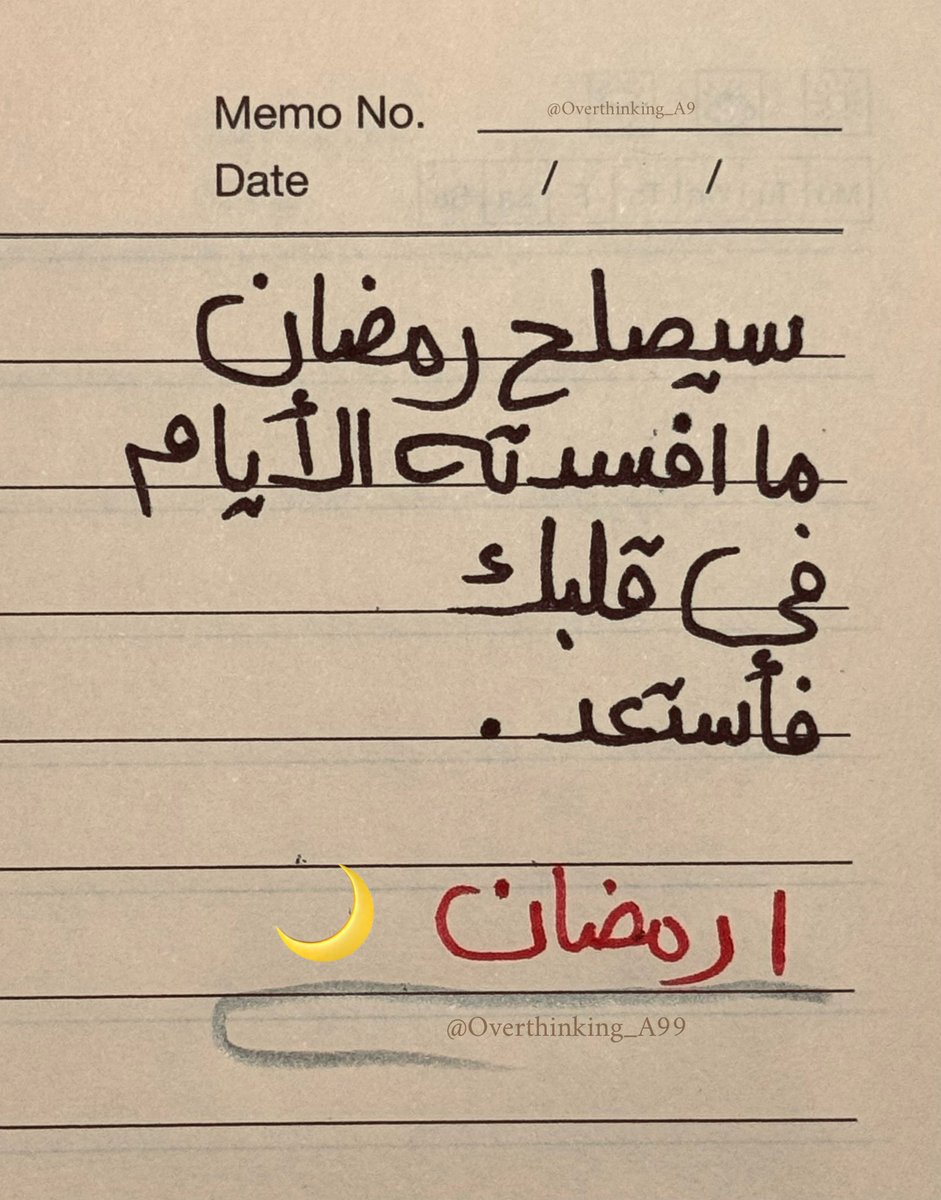 Memo No. @Overthinking_A9
Date / /
سيصلح رمضان
ما افسدته الأيام
في قلبك
فأستعد .
١ رمضان 🌙
@Overthinking_A99